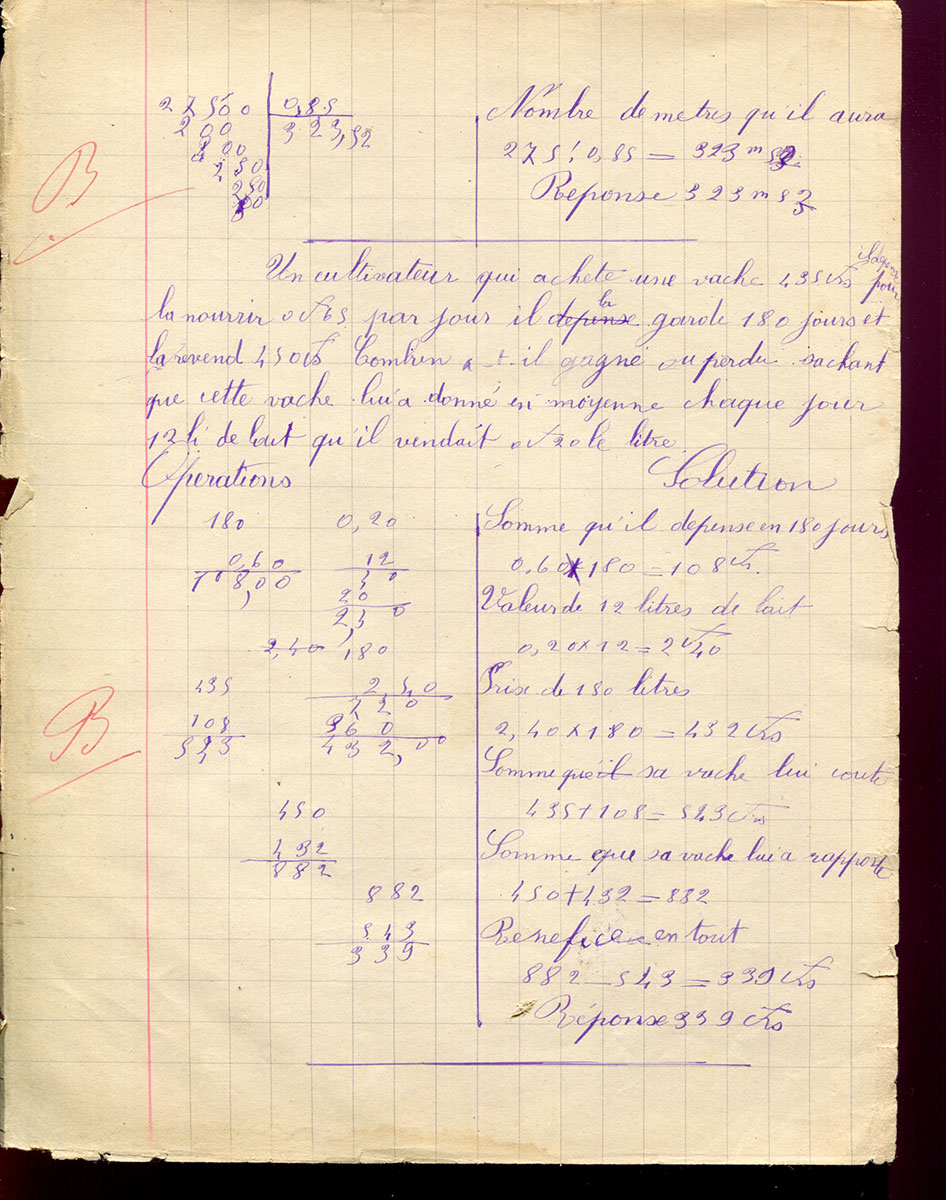 B
27500 | 0,85
200 323,52
300
250
250
Nombre de metres qu'il aura
275 : 0,85 = 323 m 52
Reponse 323 m 52
Un cultivateur qui achete une vache 435 frs il depense pour
la nourrir 0 f 65 par jour il depense la garde 180 jours et
la revend 450 frs Combien a-t-il gagné ou perdu sachant
que cette vache lui a donné en moyenne chaque jour
12 li de lait qu'il vendait 0 f 20 le litre
Opérations
180 0,20
0,60 12
108,00 40
20
2,40
2,40 180
435 2,40
108 720
543 360
432,00
450
432
882
882
543
339
B
Solution
Somme qu'il depense en 180 jours
0,60 x 180 = 108 fr.
Valeur de 12 litres de lait
0,20 x 12 = 2 f 40
Prix de 180 litres
2,40 x 180 = 432 frs
Somme que il sa vache lui coute
435 + 108 = 543 frs
Somme que sa vache lui a rapporte
450 + 432 = 882
Benefice en tout
882 - 543 = 339 frs
Réponse 339 frs